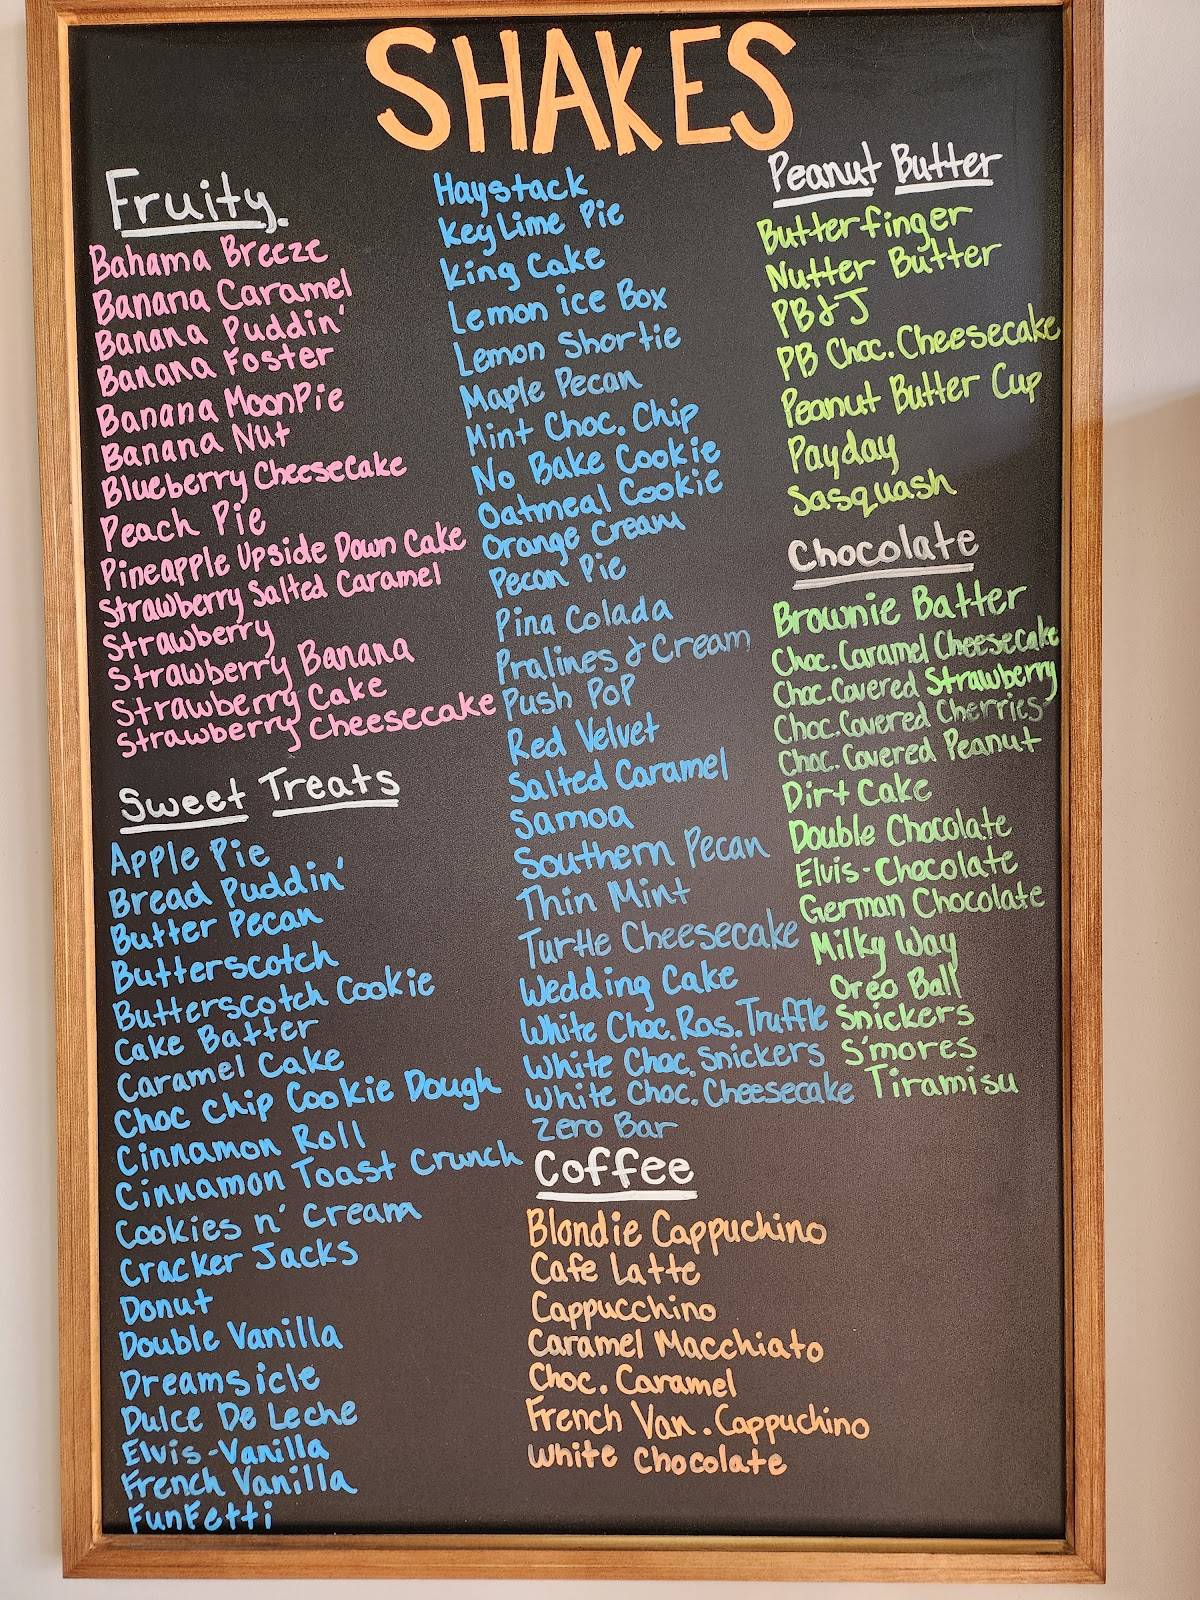 SHAKES
Fruity.
Bahama Breeze
Banana Caramel
Banana Puddin'
Banana Foster
Banana MoonPie
Banana Nut
Blueberry Cheesecake
Peach Pie
Pineapple Upside Down Cake
Strawberry Salted Caramel
Strawberry
Strawberry Banana
Strawberry Cake
Strawberry Cheesecake
Sweet Treats
Apple Pie
Bread Puddin'
Butter Pecan
Butterscotch
Butterscotch Cookie
Cake Batter
Caramel Cake
Choc Chip Cookie Dough
Cinnamon Roll
Cinnamon Toast Crunch
Cookies n' Cream
Cracker Jacks
Donut
Double Vanilla
Dreamsicle
Dulce De Leche
Elvis-Vanilla
French Vanilla
FunFetti
Haystack
Key Lime Pie
King Cake
Lemon ice Box
Lemon Shortie
Maple Pecan
Mint Choc. Chip
No Bake Cookie
Oatmeal Cookie
Orange Cream
Pecan Pie
Pina Colada
Pralines & Cream
Push Pop
Red Velvet
Salted Caramel
Samoa
Southern Pecan
Thin Mint
Turtle Cheesecake
Wedding Cake
White Choc. Ras. Truffle
White Choc. Snickers
White Choc. Cheesecake
Zero Bar
Coffee
Blondie Cappuchino
Cafe Latte
Cappucchino
Caramel Macchiato
Choc. Caramel
French Van. Cappuchino
White Chocolate
Peanut Butter
Butterfinger
Nutter Butter
PB&J
PB Choc. Cheesecake
Peanut Butter Cup
Payday
Sasquash
Chocolate
Brownie Batter
Choc. Caramel Cheesecake
Choc. Covered Strawberry
Choc. Covered Cherries
Choc. Covered Peanut
Dirt Cake
Double Chocolate
Elvis-Chocolate
German Chocolate
Milky Way
Oreo Ball
Snickers
S'mores
Tiramisu